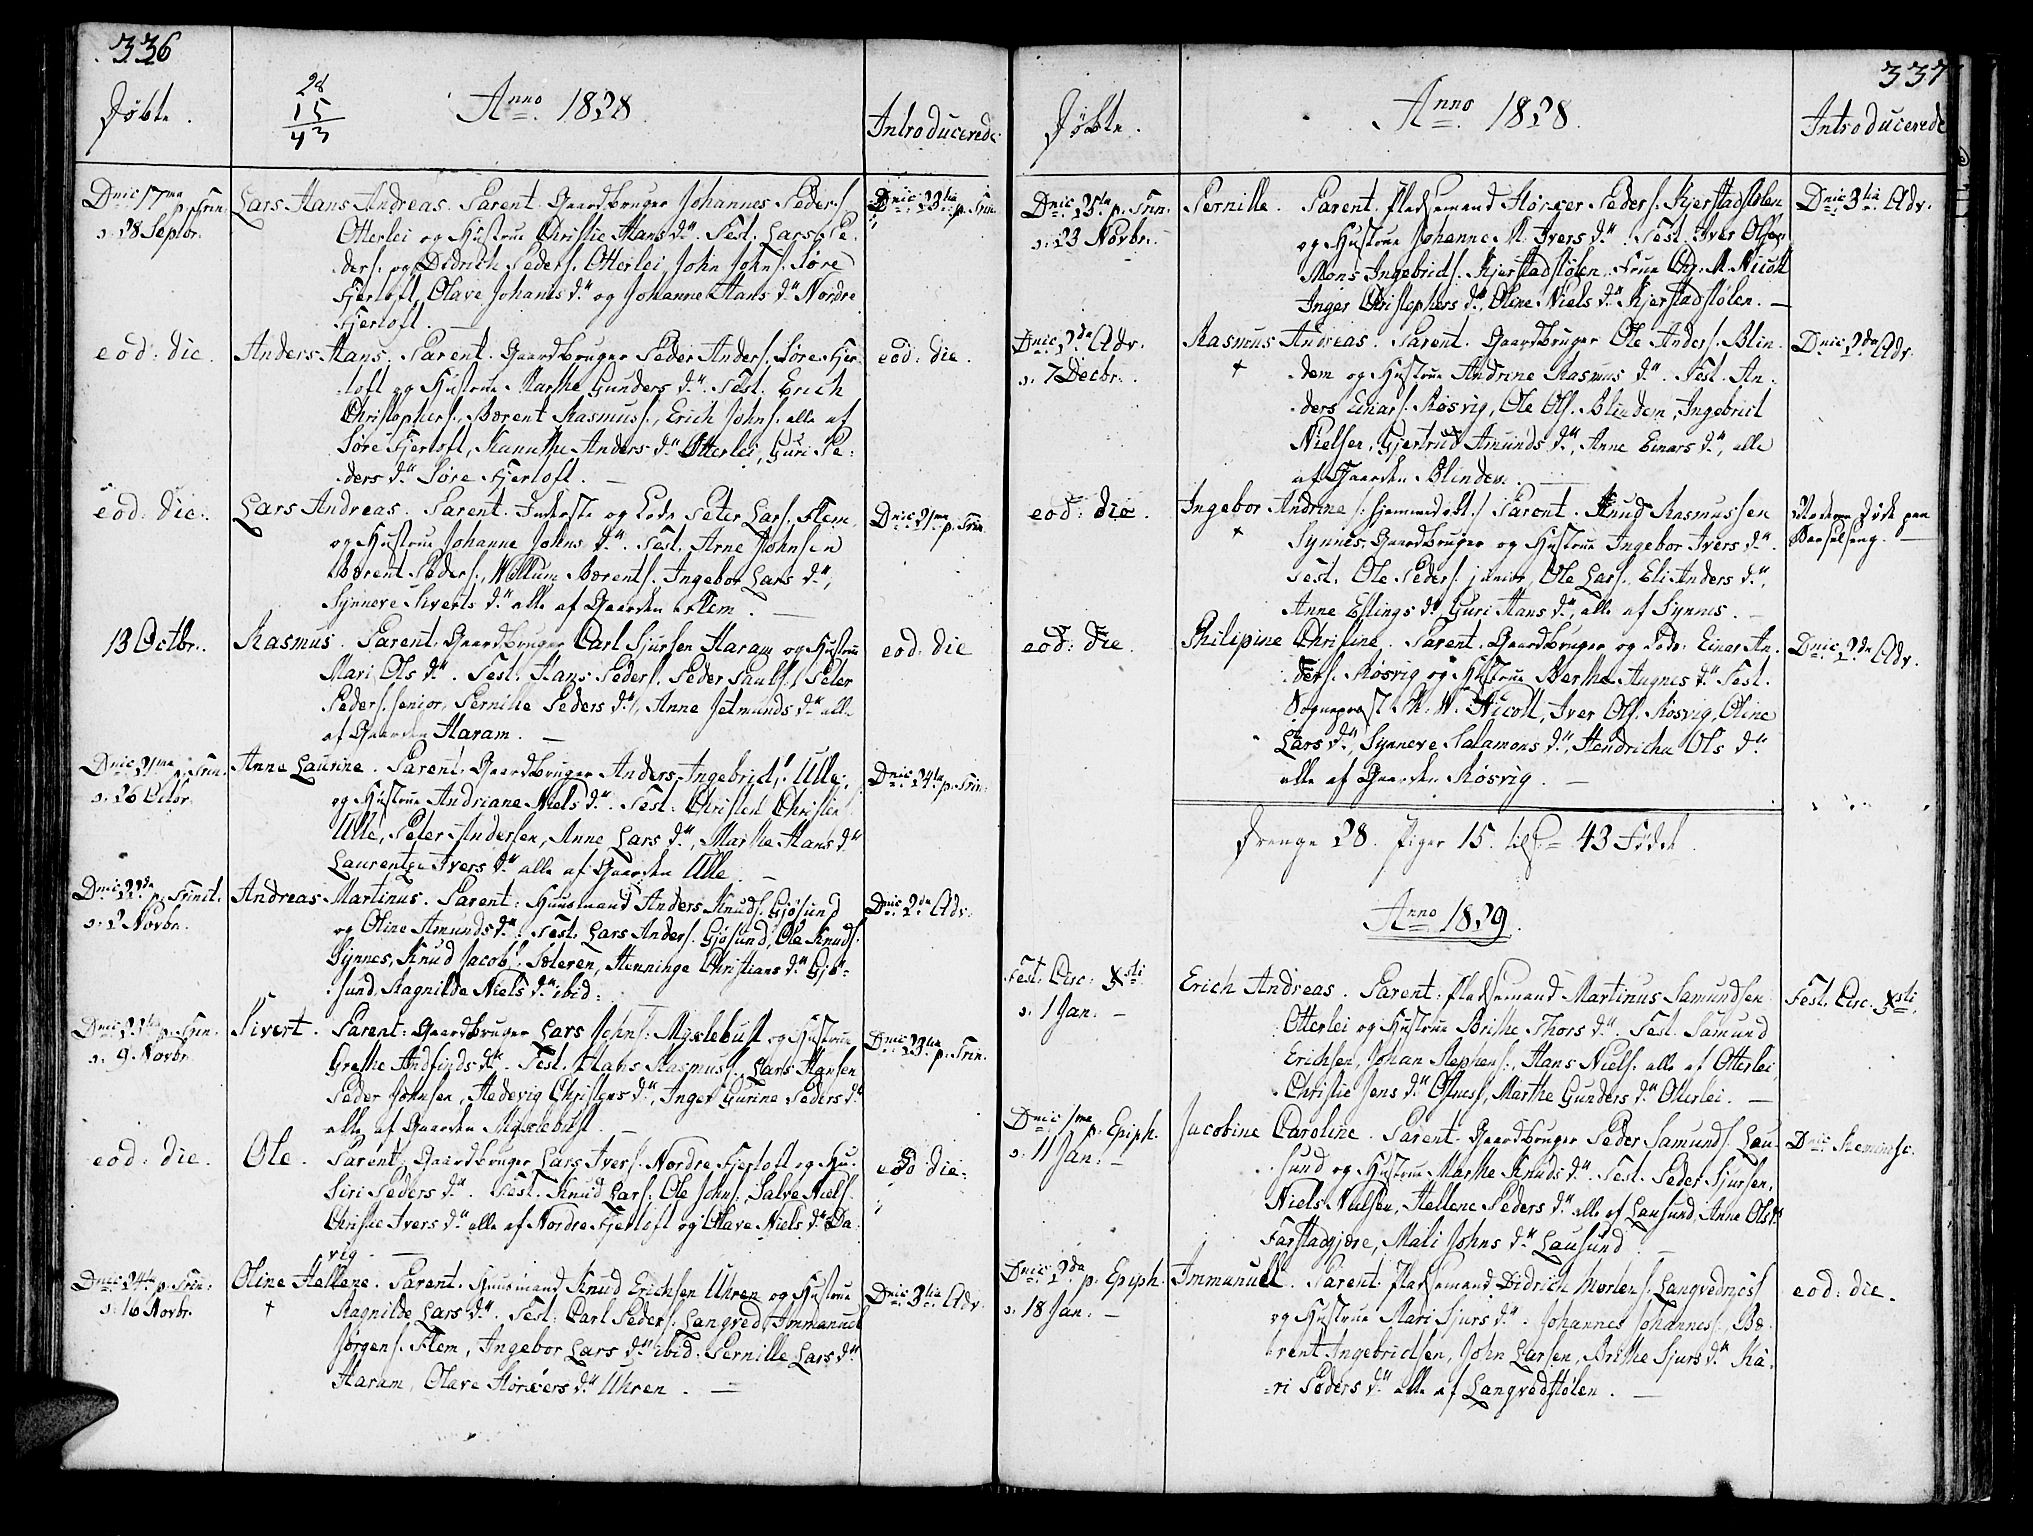 336
Døbte.
28
15
43
Anno 1828.
Introducerede
Dnic: 17ma p. Trin.
d. 28 Septbr.
Lars Hans Andreas. Parent. Gaardbruger Johannes Peders.
Otterlei og Hustrue Christie Hans dr. Test. Lars Pe-
ders. og Didrich Peders. Otterlei, John Johns. Søre
Fjertoft, Olave Johans dr. og Johanne Hans dr. Nordre
Fjertoft.
Dnic: 23tia p. Trin.
eod: die.
Anders Hans. Parent. Gaardbruger Peder Anders. Søre Fjer-
toft og Hustrue Marthe Gunders dr. Test. Erich
Christophers., Bærent Rasmuss., Erich Johns. alle af
Søre Fjertoft, Anders dr. Otterlei, Guri Pe-
ders dr. Søre Fjertoft.
eod: die.
eod: die.
Lars Andreas. Parent. Inderste og Peter Lars. Flem
og Hustrue Johanne Johns dr. Test. Arne Johnsen
Bærent Peders., Willum Bærents. Ingebor Lars dr.,
Synneve Siverts dr. alle af Gaarden Flem.
Dnic: 21ma p. Trin.
13 Octbr.
Rasmus. Parent. Gaardbruger Carl Sjursen Haram og Hustrue
Mari Ols dr. Test. Hans Peders. Peder Pauls., Peter
Peders. senior, Pernille Peders dr., Anne Jetmunds dr. alle
af Gaarden Haram.
eod: die
Dnic: 21ma p. Trin.
d. 26 Octbr.
Anne Laurine. Parent. Gaardbruger Anders Ingebrids. Ulle
og Hustrue Andriane Niels dr. Test. Christen Christens.
Ulle, Peter Andersen, Anne Lars dr., Marthe Hans dr.
Laurentze Ivers dr. alle af Gaarden Ulle.
Dnic: 24ta p. Trin.
Dnic: 22da p. Trinit.
d. 2 Novbr.
Andreas Martinus. Parent: Huusmand Anders Knuds. Gjøsund
og Oline Amunds dr. Test. Lars Anders. Gjøsund, Ole Knuds.
Synnes, Knud Jacobs. Henninge Christians dr. Gjø-
sund, Ragnilde Niels dr. ibid:
Dnic: 2da Adv.
Dnic: 23tia p. Trin.
d. 9 Novbr.
Sivert. Parent: Gaardbruger Lars Johns. Myklebust og Hustrue
Grethe Andfinds dr. Test. Hans Rasmuss. Lars Hansen
Peder Johnsen, Hedevig Christens dr., Inger Gurine Peders dr.
alle af Gaarden Myklebust.
Dnic: 23tia p. Trin.
eod: die.
Ole. Parent: Gaardbruger Lars Ivers. Nordre Fjertoft og Hu.
Siri Peders dr. Test. Knud Lars. Ole Johns., Salve Niels.
Christie Ivers dr. alle af Nordre Fjertoft og Olave Niels dr. Da-
vig.
eod: die.
Dnic: 24ta p. Trin:
d. 16 Novbr.
Oline Hellene. Parent. Huusmand Knud Erichsen Uhren og Hustrue
Ragnilde Lars dr. Test: Carl Peders. Langved, Immanuel
Jørgens. Flem, Ingebor Lars dr. ibid: Pernille Lars dr.
Haram, Olave Størcers dr. Uhren.
Dnic: 3tia Adv:
337
Døbte.
Anno 1828.
Introducerede
Dnic: 25ta p. Trin.
d. 23 Novbr.
Pernille. Parent. Pladsemand Størcer Peders. Kjerstadstølen
og Hustrue Johanne M. Ivers dr. Test. Iver Olsen
Mons Ingebrids. Kjerstadstølen. Frue Chr. M. Nicoll
Inger Christophers dr., Oline Niels dr. Kjerstadstølen.
Dnic: 3tia Adv.
Dnic: 2da Adv.
d. 7 Decbr.
Rasmus Andreas. Parent. Gaardbruger Ole Anders. Blin-
dem og Hustrue Andrine Rasmus dr. Test. An-
ders Einars. Røsvig, Ole Ols. Blindem, Ingebrict
Nielsen, Gjertrud Amunds dr., Anne Einars dr., alle
af Gaarden Blindem.
Dnic: 2da Adv.
eod: die.
Ingebor Andrine /: hjemmedøbt :/ Parent. Knud Rasmussen
Synnes, Gaardbruger og Hustrue Ingebor Ivers dr.
Test. Ole Peders. junior, Ole Lars. Eli Anders dr.,
Anne Eslings dr., Guri Hans dr., alle af Synnes.
Moderen døde paa
Barselseng.
eod: die.
Philipine Christine. Parent. Gaardbruger og Einar An-
ders. Røsvig og Hustrue Berthe Augnes dr. Test.
Sognepræst W. Nicoll, Iver Ols. Røsvig, Oline
Lars dr., Synneve Salamons dr., Hendricha Ols dr.
alle af Gaarden Røsvig.
Dnic: 2da Adv.
Drenge 28. Piger 15. tils. = 43 Fødde.
Anno 1829.
Fest. Circ: Xsti
d. 1 Jan.
Erich Andreas. Parent: Pladsemand Martinus Samundsen
Otterlei og Hustrue Brithe Thors dr. Test. Samund
Erichsen, Johan Stephens., Hans Niels. alle af Otterlei
Christie Jens dr. Olnes, Marthe Gunders dr. Otterlei.
Fest. Circ. Xsti.
Dnic: 1ma p. Epiph.
d. 11 Jan.
Jacobine Caroline. Parent. Gaardbruger Peder Samunds. Lau-
sund og Hustrue Marthe Knuds dr. Test. Peder Sjursen.
Niels Nielsen, Hellene Peders dr. alle af Lausund, Anne Ols dr.
Farstadgjære, Mali Johns dr. Lausund
Dnic: Reminisc.
Dnic: 2da p. Epiph.
d. 18 Jan.
Immanuel. Parent. Pladsemand Didrich Mortens. Langvednes
og Hustrue Mari Sjurs dr. Johannes Johannes., Bæ-
rent Ingebrictsen, John Larsen, Brithe Sjurs dr. Ka-
ri Peders dr. alle af Langvedstølen.
eod: die.